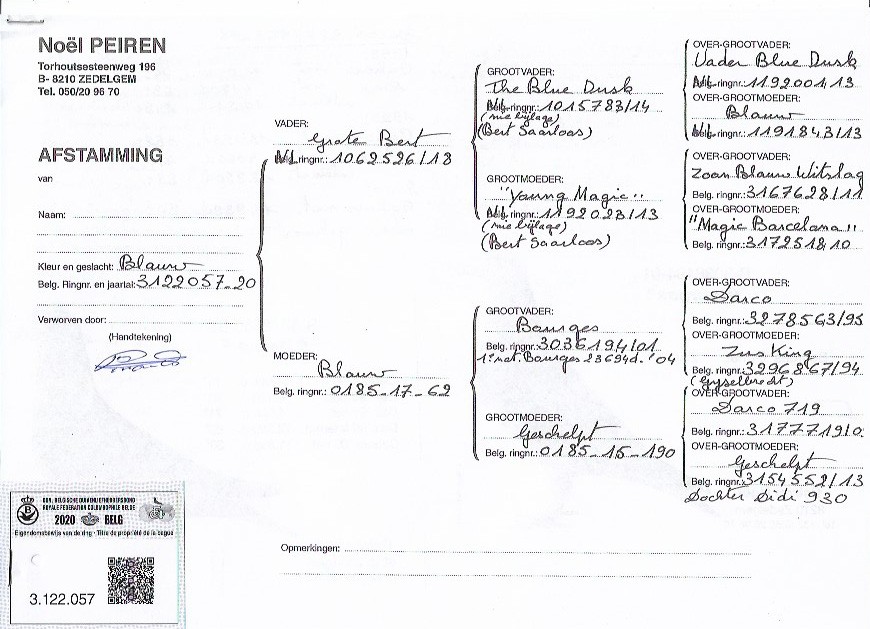 Noël PEIREN
Torhoutsesteenweg 196
B- 8210 ZEDELGEM
Tel. 050/20 96 70
AFSTAMMING
van
Naam:
Kleur en geslacht: Blauw
Belg. Ringnr. en jaartal: 3122057-20
Verworven door:
(Handtekening)
VADER:
Grote Bert
Nl. ringnr.: 1062526/13
MOEDER:
Blauw
Belg. ringnr.: 0185-17-62
GROOTVADER:
The Blue Dusk
Nl. ringnr.: 1015783/14
(mie bijlage)
(Bert Saarloos)
GROOTMOEDER:
"Young Magic"
Nl. ringnr.: 1192023/13
(mie bijlage)
(Bert Saarloos)
GROOTVADER:
Bourges
Belg. ringnr.: 3036194/01
1° nat. Bourges 23694d. '04
GROOTMOEDER:
Geschelpt
Belg. ringnr.: 0185-15-190
OVER-GROOTVADER:
Vader Blue Dusk
Nl. ringnr.: 1192001/13
OVER-GROOTMOEDER:
Blauw
Nl. ringnr.: 1191843/13
OVER-GROOTVADER:
Zoon Blauw Witslag
Belg. ringnr.: 3167628/11
OVER-GROOTMOEDER:
"Magic Barcelona"
Belg. ringnr.: 3172518/10
OVER-GROOTVADER:
Darco
Belg. ringnr.: 3278563/95
OVER-GROOTMOEDER:
Zus King
Belg. ringnr.: 3296867/94
(Gyselbrecht)
OVER-GROOTVADER:
Darco 719
Belg. ringnr.:
OVER-GROOTMOEDER:
Geschelpt
Belg. ringnr.: 3154552/13
Dochter Didi 930
Opmerkingen:
KON. BELGISCHE DUIVENLIEFHEBBERSBOND
ROYALE FEDERATION COLOMBOPHILE BELGE
2020 BELG
Eigendomsbewijs van de ring - Titre de propriété de la bague
3.122.057